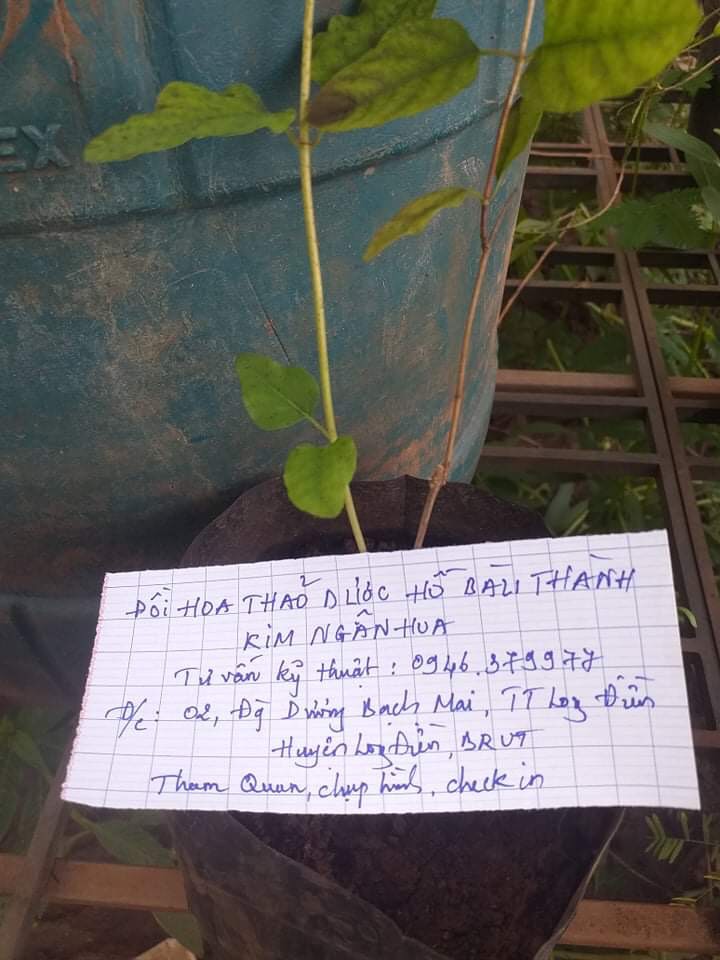 EX
ĐỒI HOA THẢO DƯỢC HỒ BÀU THÀNH
KIM NGÂN HOA
Tư vấn kỹ thuật: 0946.379977
Đ/c: 02, Đg Dương Bạch Mai, TT Long Điền
Huyện Long Điền, BRVT
Tham Quan, chụp hình, check in